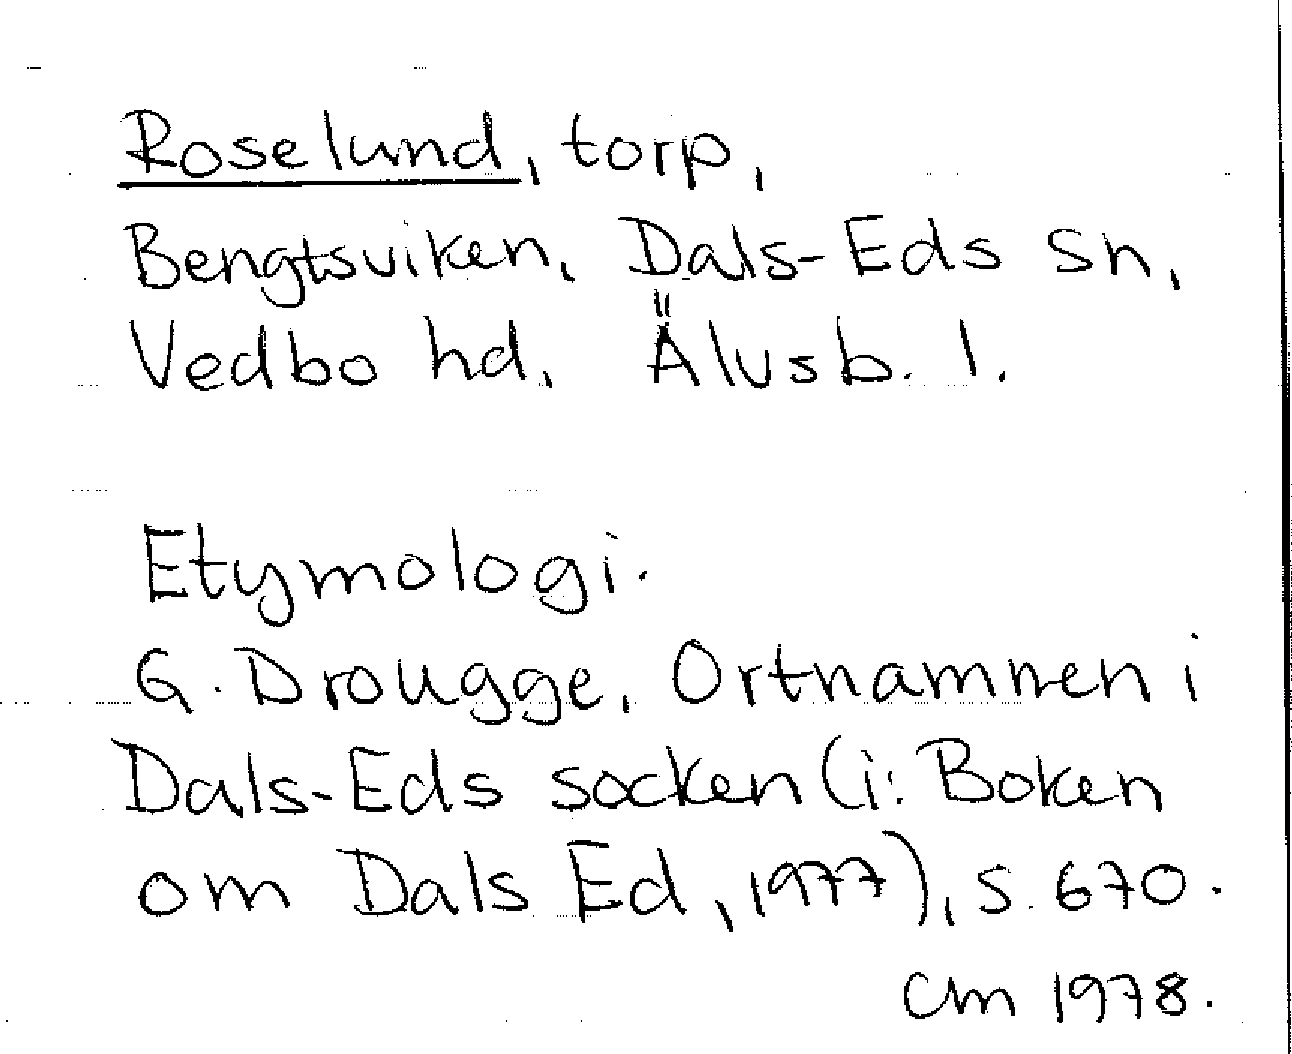 Roselund, torp,
Bengtsviken, Dals-Eds sn,
Vedbo hd, Älvsb. l.
Etymologi.
G. Drougge, Ortnamnen i
Dals-Eds socken (i: Boken
om Dals Ed, 1977), s. 670.
CM 1978.